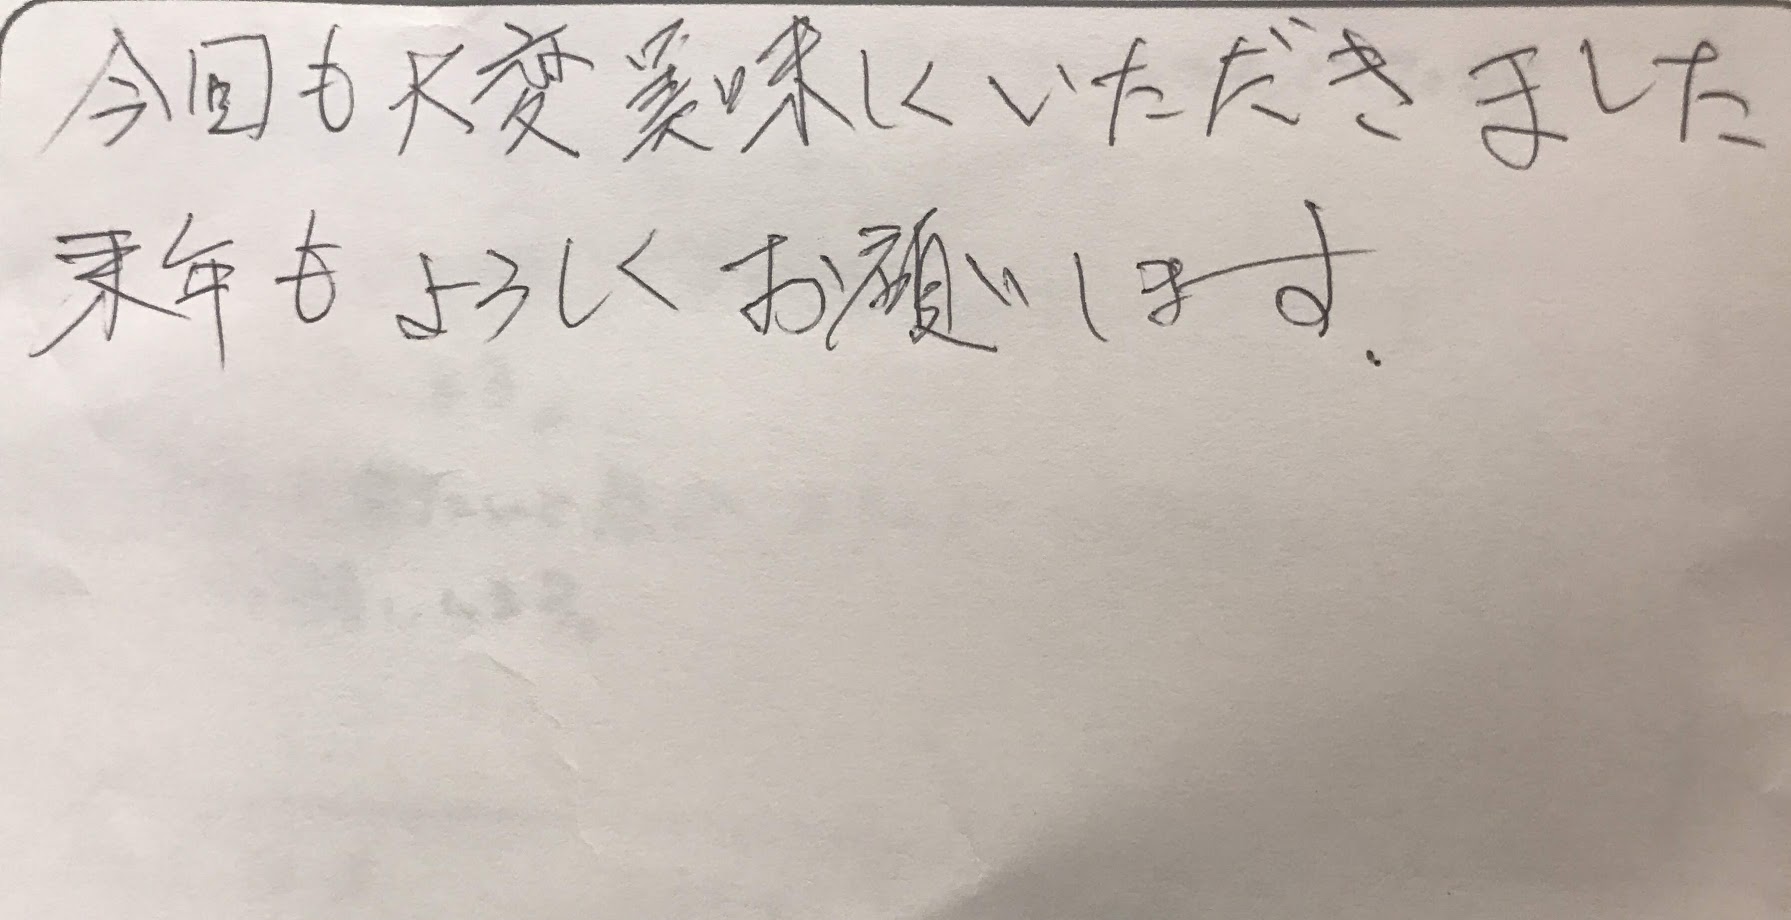 今回も大変美味しくいただきました
来年もよろしくお願いします.